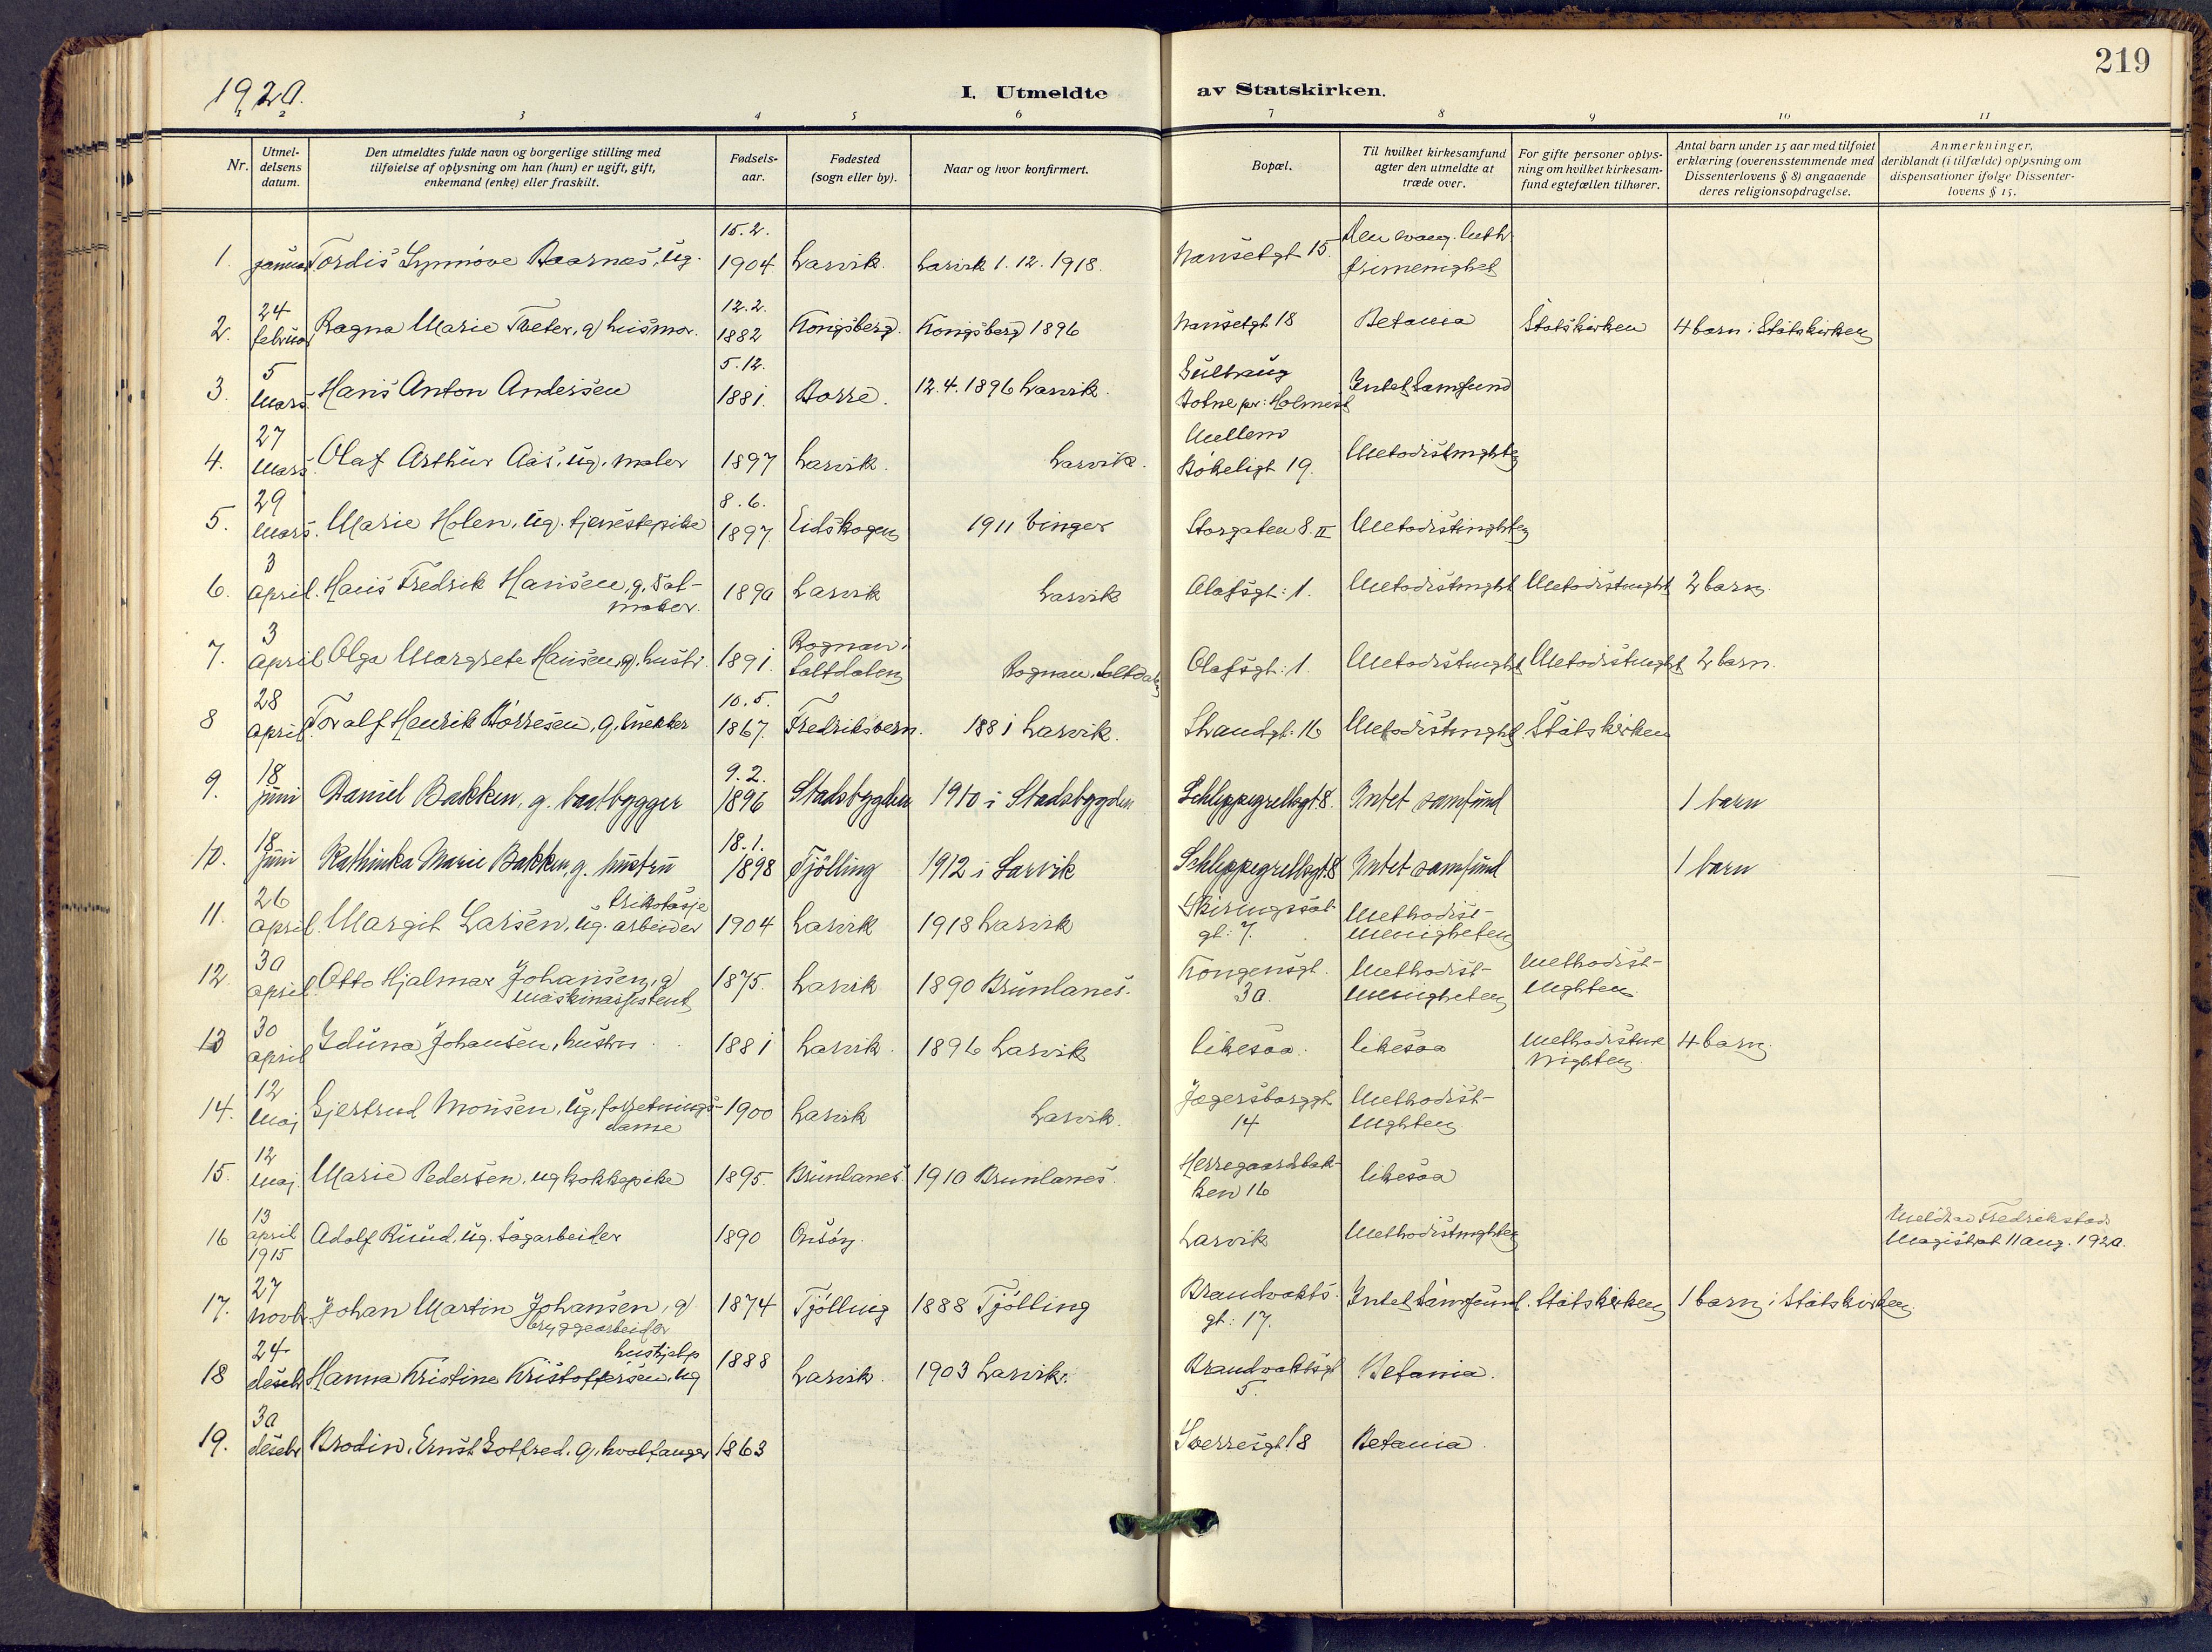 219
1920.
I. Utmeldte av Statskirken.
1 2 3 4 5 6 7 8 9 10 11
Nr.
Utmel-
delsens
datum.
Den utmeldtes fulde navn og borgerlige stilling med
tilføielse af oplysning om han (hun) er ugift, gift,
enkemand (enke) eller fraskilt.
Fødsels-
aar.
Fødested
(sogn eller by).
Naar og hvor konfirmert.
Bopæl.
Til hvilket kirkesamfund
agter den utmeldte at
træde over.
For gifte personer oplys-
ning om hvilket kirkesam-
fund egtefællen tilhører.
Antal barn under 15 aar med tilføiet
erklæring (overensstemmende med
Dissenterlovens § 8) angaaende
deres religionsopdragelse.
Anmerkninger,
deriblandt (i tilfælde) oplysning om
dispensationer ifølge Dissenter-
lovens § 15.
15.2. Den evang. luth.
1. januar Tordis Synnøve Baarnes, ug. 1904 Larvik. Larvik 1.12.1918. Nansetgt 15. frimenighet
24 12.2.
2. februar Ragna Marie Tveter, g husmor. 1882 Kongsberg. Kongsberg 1896 Nansetgt 18 Betania Statskirken 4 barn i Statskirken
5 5.12. Gulhaug
3. Mars Hans Anton Andersen 1881. Borre. 12.4.1896 Larvik. Botne pr: Holmest Intet Samfund
27 Mellem
4. Mars. Olaf Arthur Aas, ug. maler 1897 Larvik. Larvik. Bøkeligt 19. Metodistmghtg
29 8.6.
5. Mars. Marie Holen, ug. tjenestepike 1897 Eidskogen 1911 Vinger Storgaten 8. II Metodistmghten
3
6. April. Hans Fredrik Hansen, g. Sal- 1890 Larvik Larvik Olafsgt: 1. Metodistmght Metodistmght 2 barn.
maker.
3 Rognan i
7. April Olga Margrete Hansen, g. hustr. 1891. Saltdalen Rognan, Saltdalen Olafsgt: 1. Metodistmght Metodistmght 2 barn.
28 10.5.
8 April Toralf Henrik Børresen, g. snekker 1867. Fredriksvern. 1881 Larvik. Strandgt: 16 Metodistmght Statskirken
18 9.2.
9. juni Daniel Bakken, g. baatbygger 1896 Stadsbygden 1910 i Stadsbygden Schleppegrellsgt. 8. Intet samfund 1 barn
18. 18.1.
10. juni Kathinka Marie Bakken, g. hustru 1898 Tjölling 1912 i Larvik Schleppegrellsgt. 8 Intet samfund 1 barn
26 trikotasje Skiringssal Methodist-
11. April. Margit Larsen, ug. arbeider 1904 Larvik 1918 Larvik gt: 7. menigheten
30 Kongensgt. Methodist- Methodist-
12 April. Otto Hjalmar Johansen, g 1875. Larvik 1890 Brunlanes. 30. Menigheten Mghten
maskinassistent
30
13 April Iduna Johansen, hustru 1881 Larvik. 1896 Larvik likesaa. likesaa Methodistme 4 barn.
nighten
12 Jegersborggt. Methodist-
14. Maj Gjertrud Monsen, ug, forretnings- 1900 Larvik Larvik. 14 Mghten
dame
12 Herregaardsbak-
15. Maj. Marie Pedersen, ug kokkepike 1895. Brunlanes. 1910 Brunlanes. ken 16 likesaa
13
16 april Adolf Ruud, ug. sagarbeider 1890 Onsøy. Larvik Methodistmghten Meldt av Fredrikstad
1915 Magistrat 11 aug. 1920.
27 Brandvakts-
17. Novb. Johan Martin Johansen, g 1874 Tjølling 1888 Tjølling gt: 17. Intet Samfund. Statskirken 1 barn i Statskirken.
bryggearbeider
24 hushjelp
18 desebr Hanna Kristine Kristoffersen. ug 1888 Larvik. 1903 Larvik. Brandvaktsgt 5. Betania.
30
19. desebr Brodin, Ernst Gotfred. g. hvalfanger 1863 Sverresgt 18 Betania.